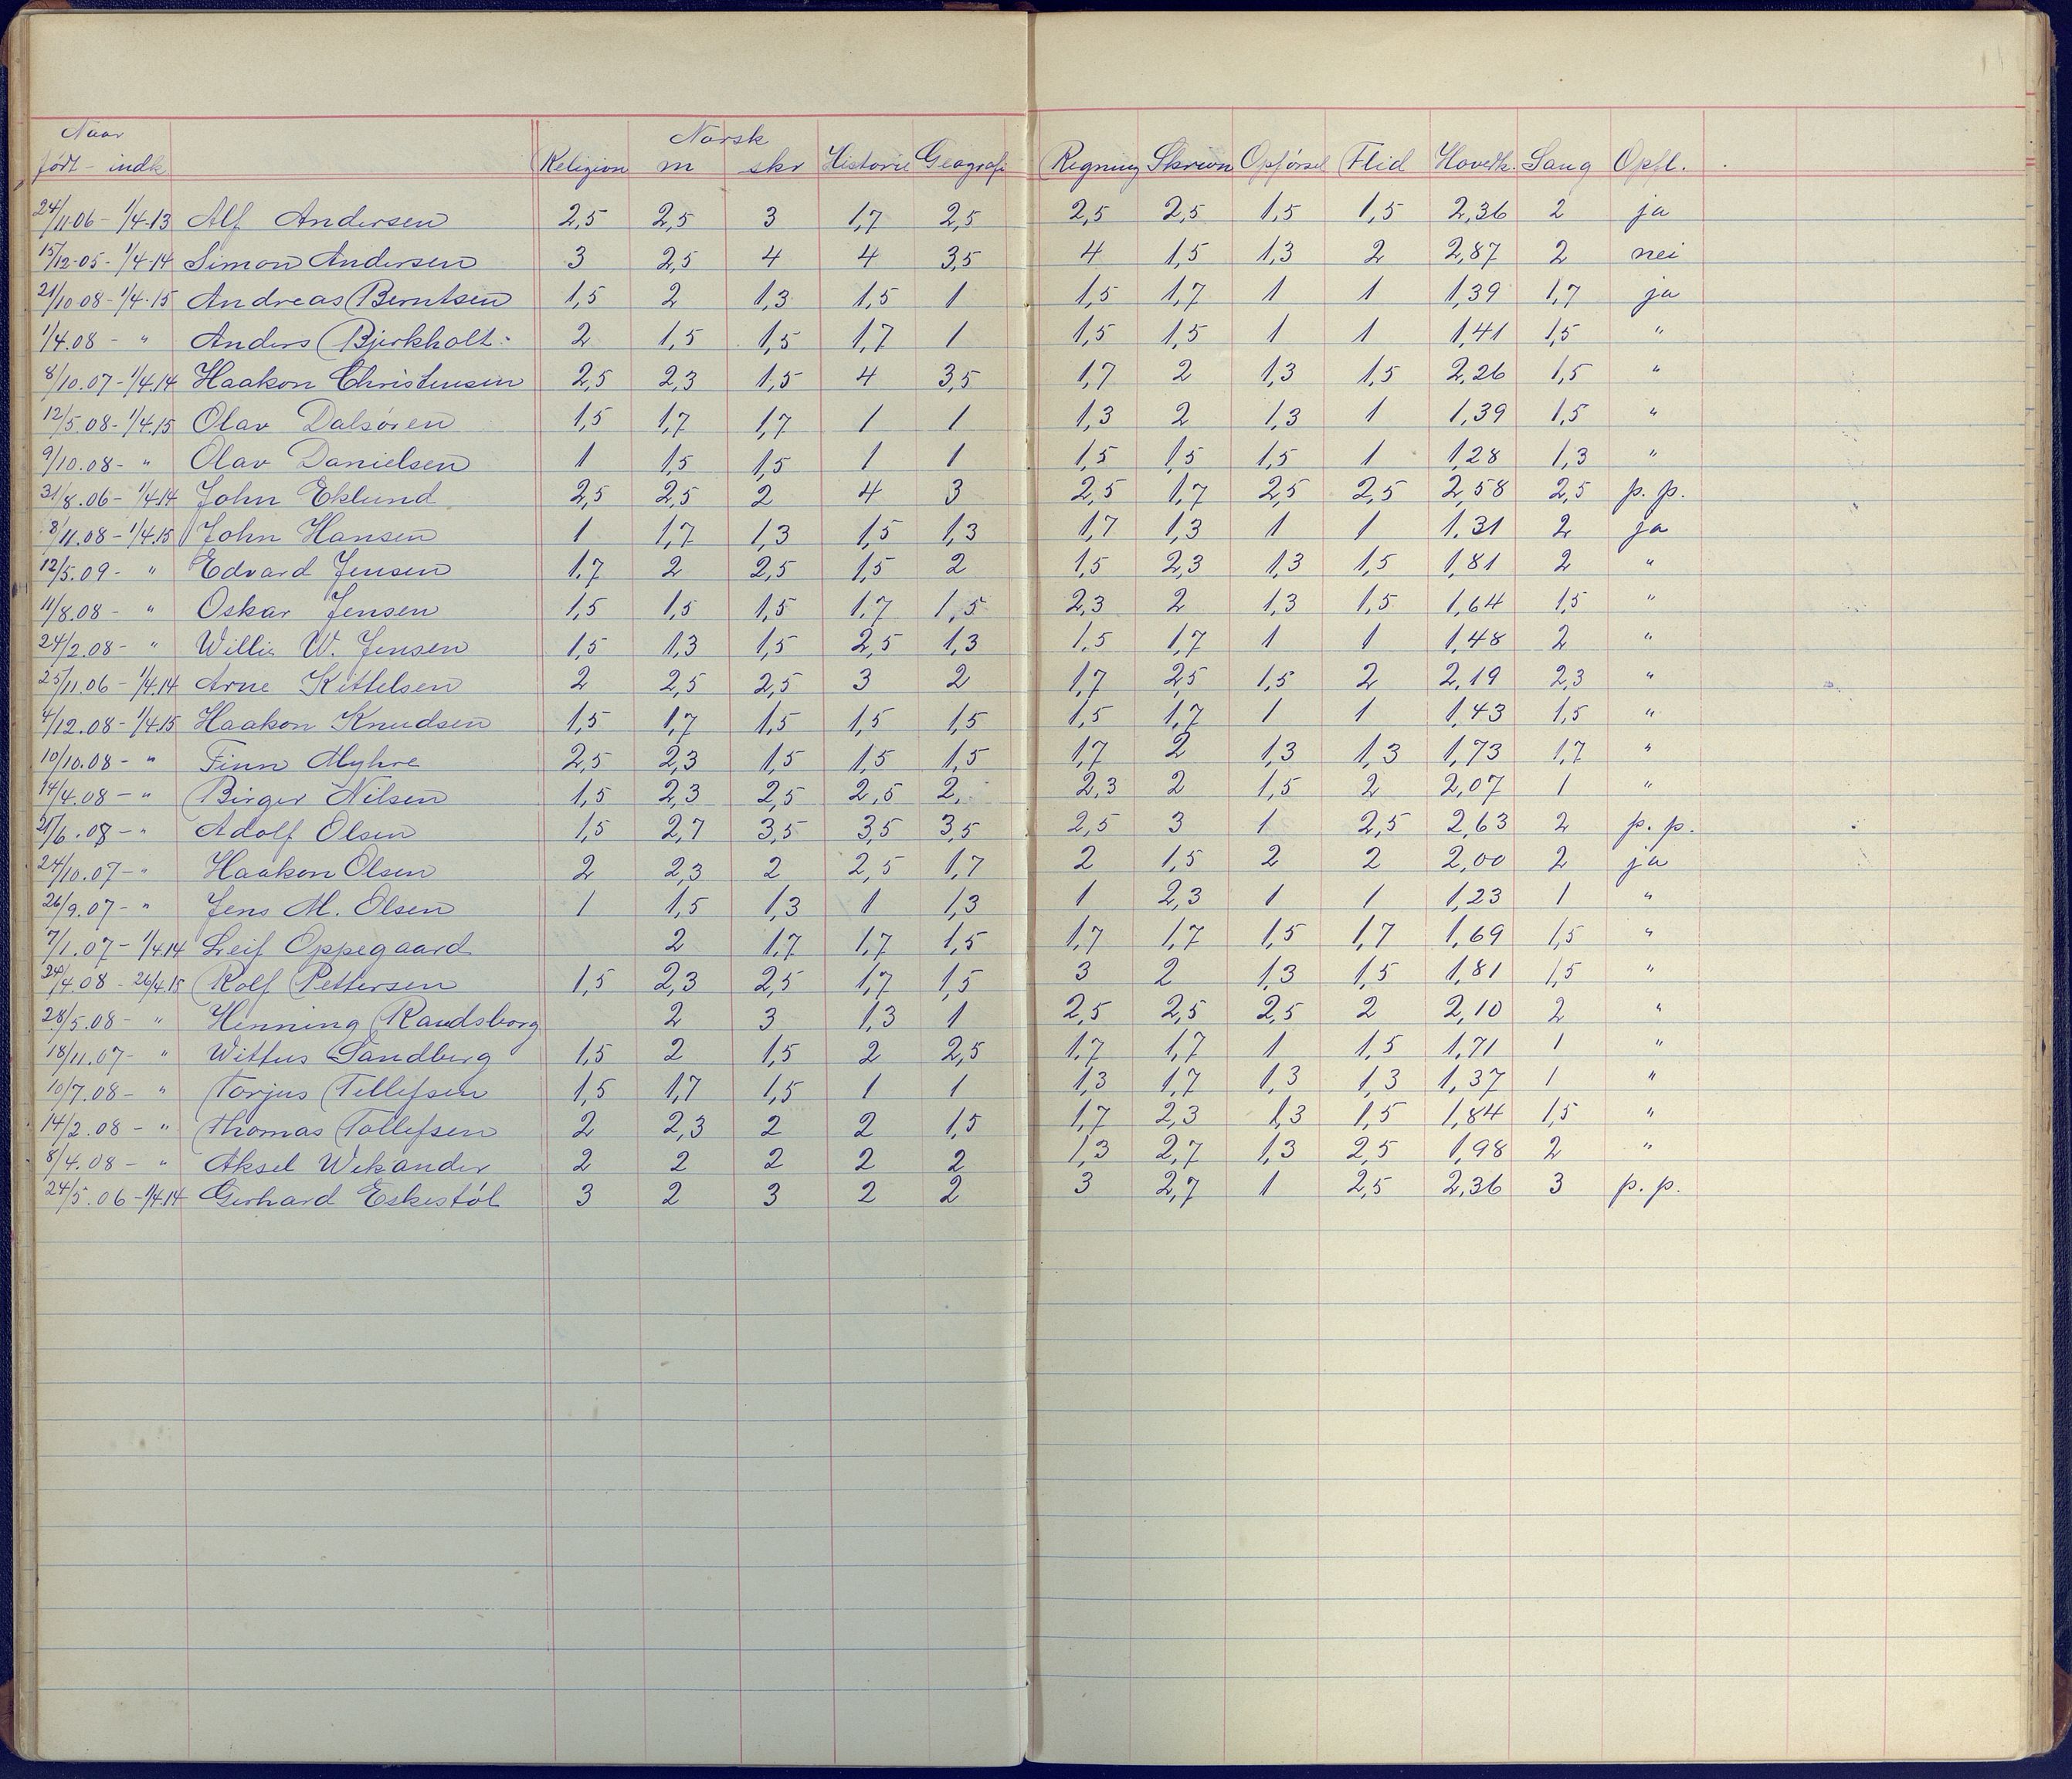 Naar Norsk
født - indk Religion m skr Historie Geografi Regning Skrivn Opførsel Flid Hovedk. Sang Opfl.
24/11 06 - 1/4-13 Alf Andersen 2,5 2,5 3 1,7 2,5 2,5 2,5 1,5 1,5 2,36 2 ja
15/12-05 - 1/4-14 Simon Andersen 3 2,5 4 4 3,5 4 1,5 1,3 2 2,87 2 nei
21/10 08 - 1/4-15 Andreas Berntsen 1,5 2 1,3 1,5 1 1,5 1,7 1 1 1,39 1,7 ja
1/4.08 - " Anders Bjerkholt 2 1,5 1,5 1,7 1 1,5 1,5 1 1 1,41 1,5 "
8/10.07 - 1/4.14 Haakon Christensen 2,5 2,3 1,5 4 3,5 1,7 2 1,3 1,5 2,26 1,5 "
12/5.08 - 1/4.15 Olav Dalsøren 1,5 1,7 1,7 1 1 1,3 2 1,3 1 1,39 1,5 "
9/10.08 - " Olav Danielsen 1 1,5 1,5 1 1 1,5 1,5 1,5 1 1,28 1,3 "
31/8.06 - 1/4.14 John Eklund 2,5 2,5 2 4 3 2,5 1,7 2,5 2,5 2,58 2,5 p. p.
8/11.08 - 1/4.15 John Hansen 1 1,7 1,3 1,5 1,3 1,7 1,3 1 1 1,31 2 ja
12/5.09 - " Edvard Jensen 1,7 2 2,5 1,5 2 1,5 2,3 1,3 1,5 1,81 2 "
11/8.08 - " Oskar Jensen 1,5 1,5 1,5 1,7 1,5 2,3 2 1,3 1,5 1,64 1,5 "
24/2.08 - " Willie W. Jensen 1,5 1,3 1,5 2,5 1,3 1,5 1,7 1 1 1,48 2 "
25/11.06 - 1/4.14 Arne Kittelsen 2 2,5 2,5 3 2 1,7 2,5 1,5 2 2,19 2,3 "
4/12.08 - 1/4.15 Haakon Knudsen 1,5 1,7 1,5 1,5 1,5 1,5 1,7 1 1 1,43 1,5 "
10/10.08 - " Finn Myhre 2,5 2,3 1,5 1,5 1,5 1,7 2 1,3 1,3 1,73 1,7 "
14/4.08 - " Birger Nilsen 1,5 2,3 2,5 2,5 2, 2,3 2 1,5 2 2,07 1 "
21/6.08 - " Adolf Olsen 1,5 2,7 3,5 3,5 3,5 2,5 3 1 2,5 2,63 2 p. p.
24/10.07 - " Haakon Olsen 2 2,3 2 2,5 1,7 2 1,5 2 2 2,00 2 ja
26/9.07 - " Jens M. Olsen 1 1,5 1,3 1 1,3 1 2,3 1 1 1,23 1 "
7/1.07 - 1/4.14 Leif Oppegaard 2 1,7 1,7 1,5 1,7 1,7 1,5 1,7 1,69 1,5 "
24/4.08 - 26/4.15 Rolf Pettersen 1,5 2,3 2,5 1,7 1,5 3 2 1,3 1,5 1,81 1,5 "
28/5.08 - " Henning Raudsborg 2 3 1,3 1 2,5 2,5 2,5 2 2,10 2 "
18/11.07 - " Wittus Sandberg 1,5 2 1,5 2 2,5 1,7 1,7 1 1,5 1,71 1 "
10/7.08 - " Torjus Tellefsen 1,5 1,7 1,5 1 1 1,3 1,7 1,3 1,3 1,37 1 "
14/2.08 - " Thomas Tollefsen 2 2,3 2 2 1,5 1,7 2,3 1,3 1,5 1,84 1,5 "
8/4.08 - " Aksel Wekander 2 2 2 2 2 1,3 2,7 1,3 2,5 1,98 2 "
24/5.06 - 1/4.14 Gerhard Eskestøl 3 2 3 2 2 3 2,7 1 2,5 2,36 3 p. p.